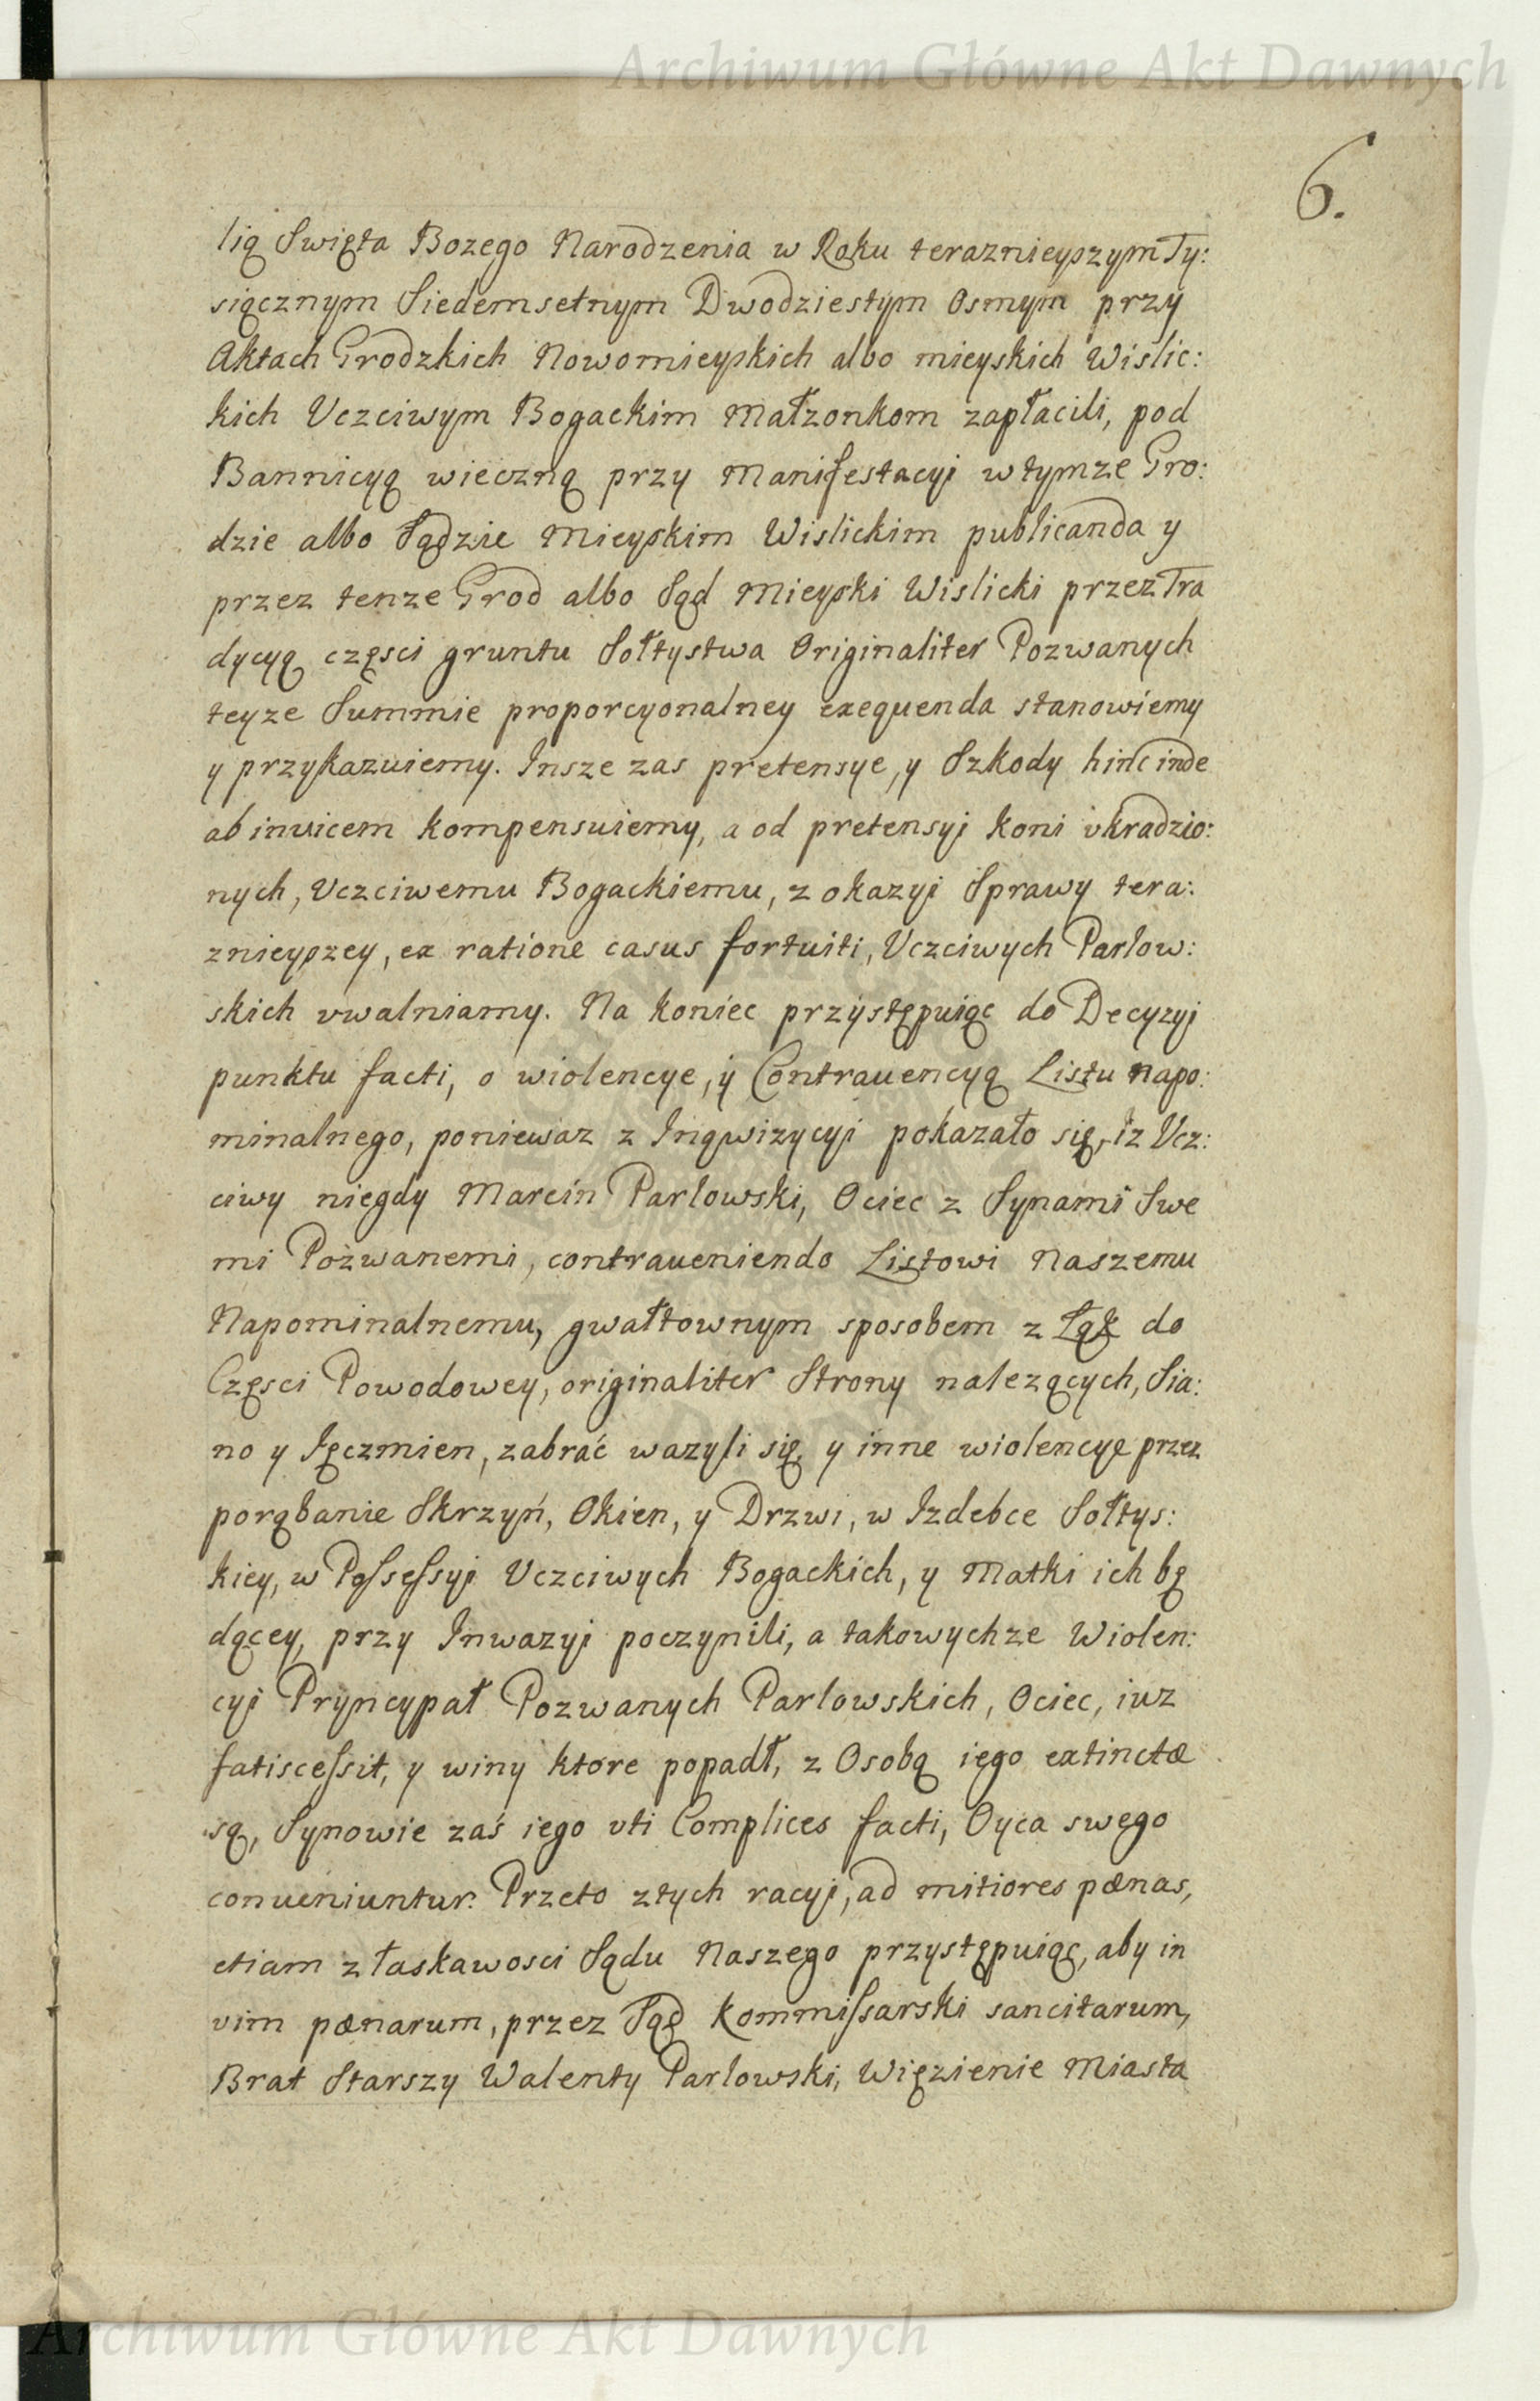 Archiwum Główne Akt Dawnych
6.
lią Swięta Bozego Narodzenia w Roku teraznieyszym Ty:
siącznym Siedemsetnym Dwodziestym Osmym przy
Aktach Grodzkich Nowomieyskich albo mieyskich Wiślic:
kich Vczciwym Bogackim Małzonkom zapłacili, pod
Bannicyą wieczną przy Manifestacyi w tymze Gro:
dzie albo Sądzie Mieyskim Wislickim publicanda y
przez tenze Grod albo Sąd Mieyski Wislicki przez Tra
dycyą częsci gruntu Sołtystwa Originaliter Pozwanych
teyze Summie proporcyonalney exequenda stanowiemy
y przykazuiemy. Insze zas pretensye, y Szkody hinc inde
ab invicem kompensuiemy, a od pretensyj koni vkradzio:
nych, Vczciwemu Bogackiemu, z okazyi Sprawy tera:
znieyszey, ex ratione casus fortuiti, Vczciwych Parlow:
skich vwalniamy. Na koniec przystępuiąc do Decyzyj
punktu facti, o wiolencye, y Contrauencyą Listu napo:
minalnego, poniewaz z Inqwizycyi pokazało się, iz Vcz:
ciwy niegdy Marcin Parlowski, Ociec z Synami Swe
mi Pozwanemi, contraueniendo Listowi Naszemu
Napominalnemu, gwałtownym sposobem z Łąk do
Częsci Powodowey, originaliter Strony nalezących, Sia:
no y Ięczmien, zabrać wazyli się, y inne wiolencye przez
porąbanie Skrzyń, Okien, y Drzwi, w Izdebce Sołtys:
kiey, w Possessyi Vczciwych Bogackich, y Matki ich bę
dącey, przy Inwazyi poczynili, a takowychze Wiolen:
cyi Pryncypał Pozwanych Parlowskich, Ociec, iuz
fatiscessit, y winy ktore popadł, z Osobą iego extinctæ
są, Synowie zaś iego vti Complices facti, Oyca swego
conueniuntur. Przeto z tych racyi, ad mitiores pœnas,
etiam z łaskawosci Sądu Naszego przystępuiąc, aby in
vim pœnarum, przez Sąd Kommissarski sancitarum,
Brat Starszy Walenty Parlowski, Więzienie Miasta
Archiwum Główne Akt Dawnych